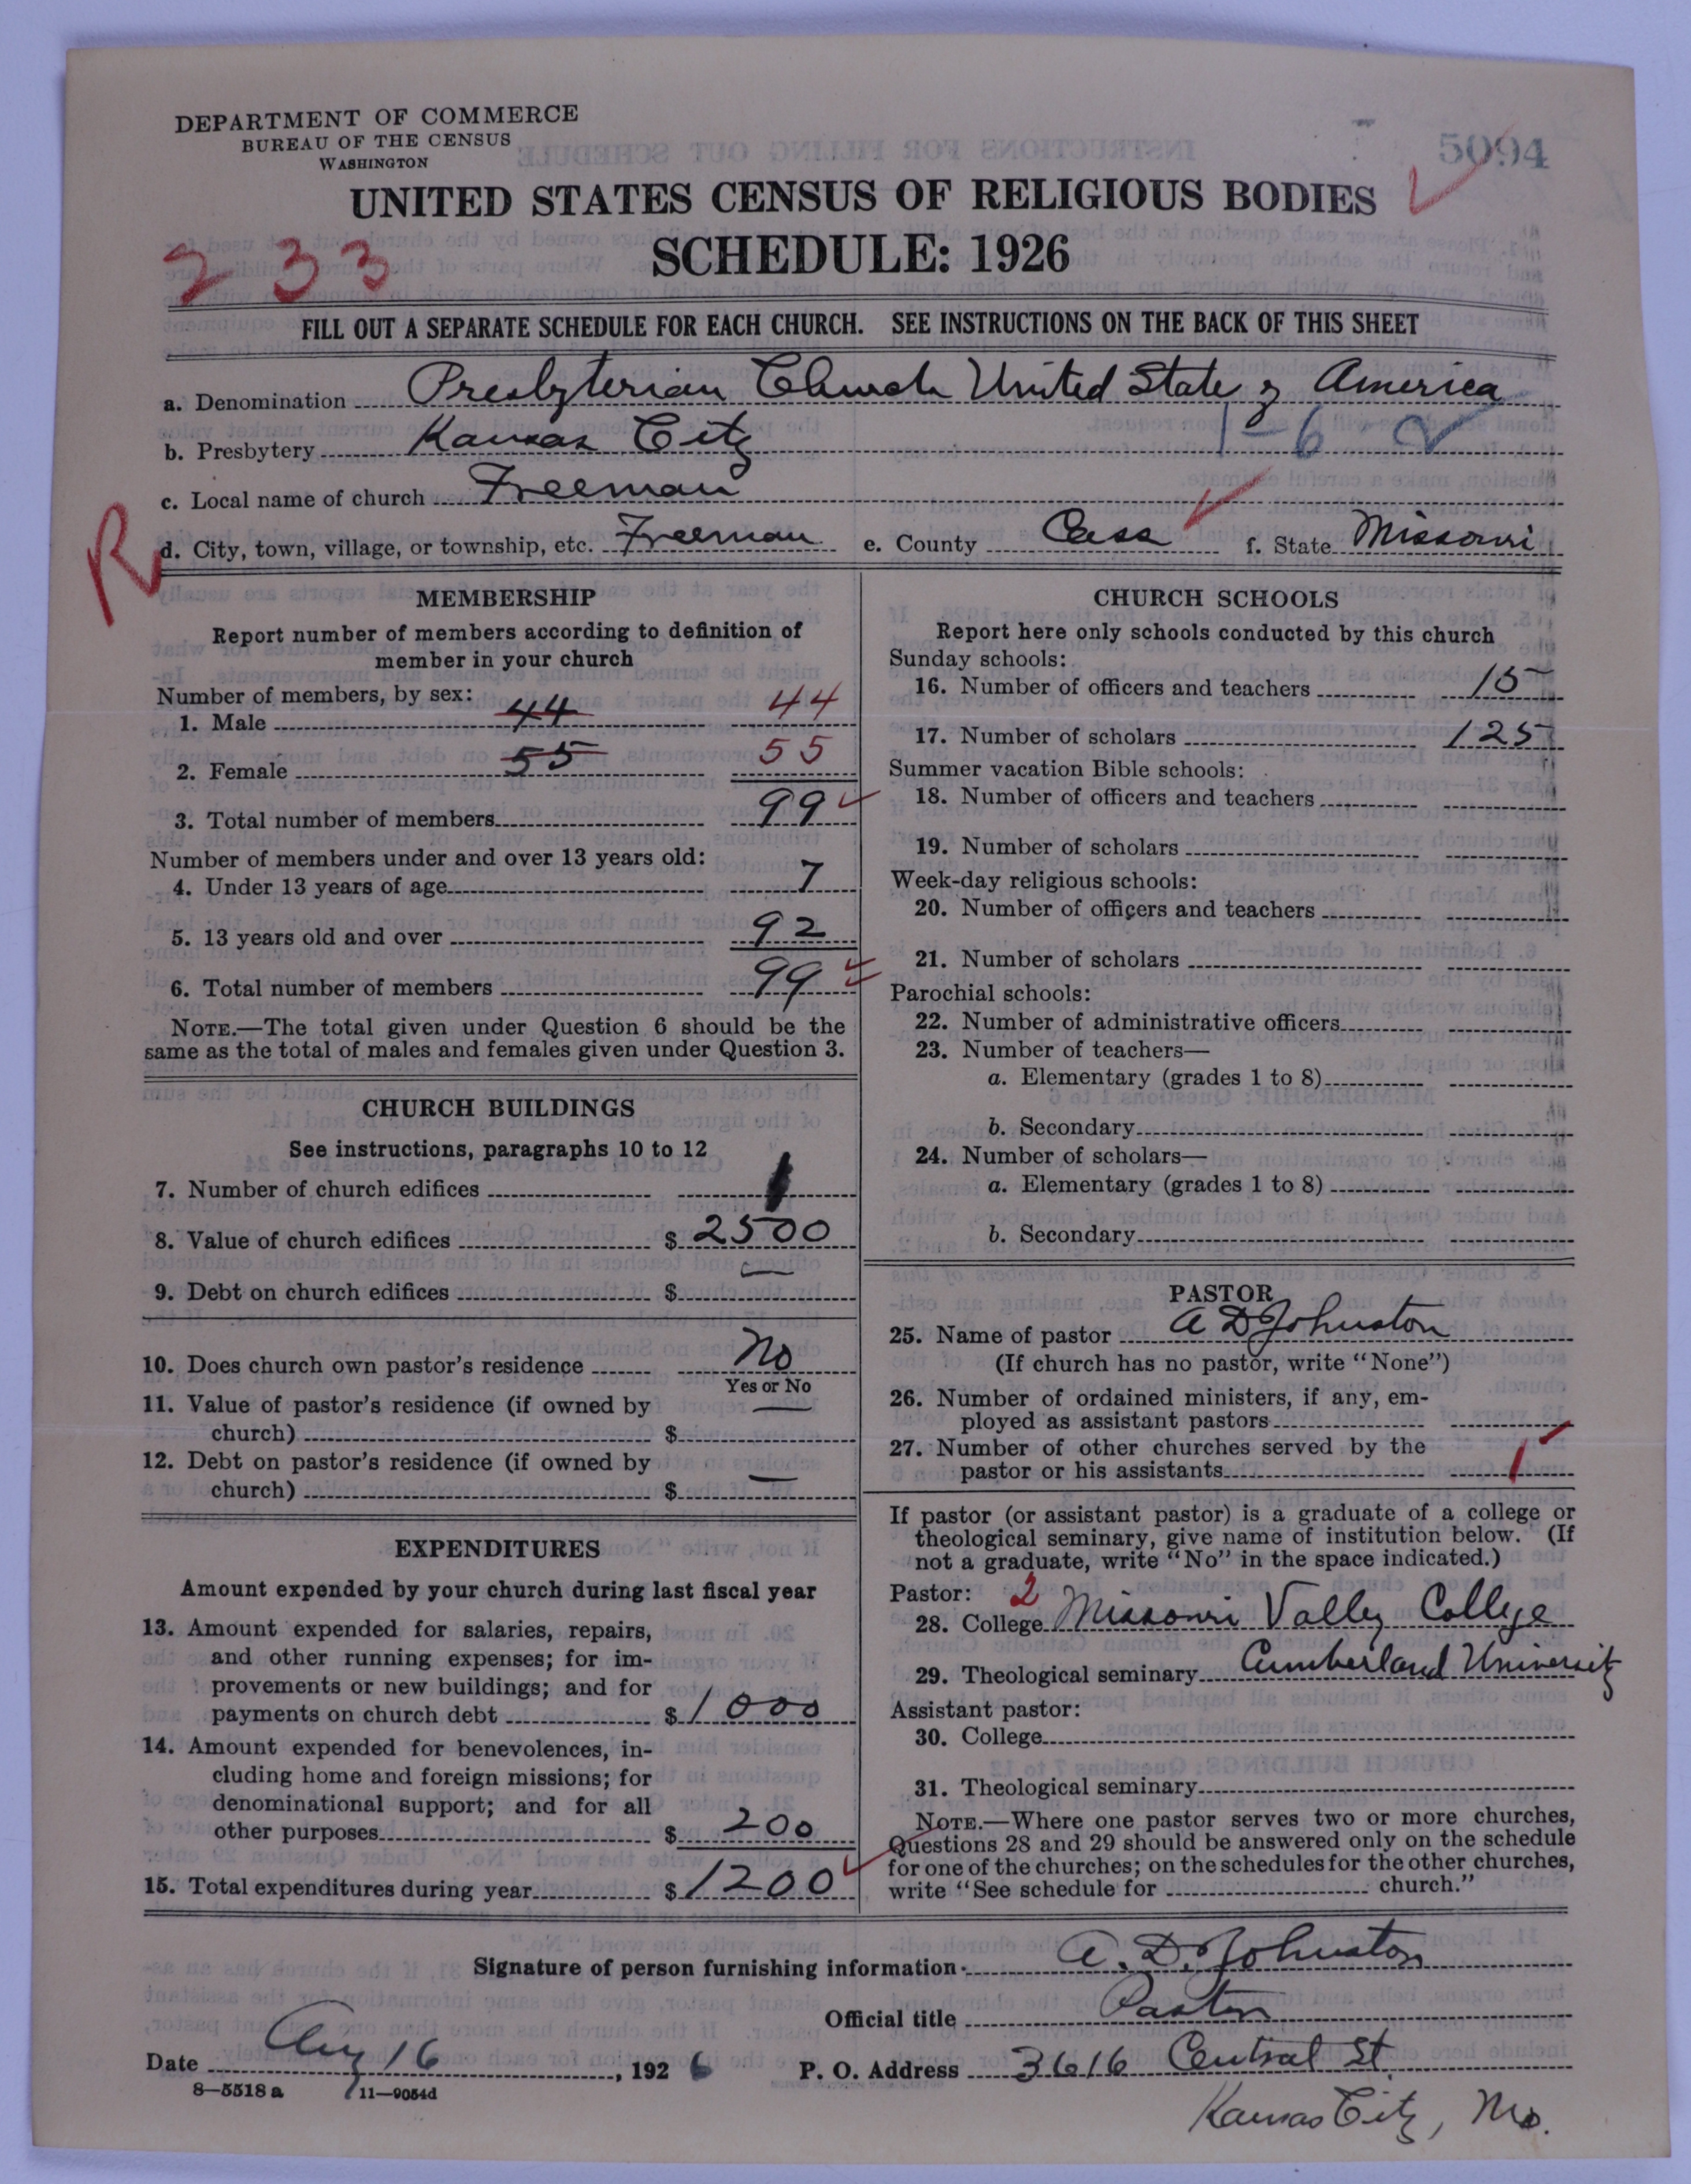 DEPARTMENT OF COMMERCE
BUREAU OF THE CENSUS
WASHINGTON
5094
UNITED STATES CENSUS OF RELIGIOUS BODIES
SCHEDULE: 1926
233
FILL OUT A SEPARATE SCHEDULE FOR EACH CHURCH. SEE INSTRUCTIONS ON THE BACK OF THIS SHEET
a. Denomination Presbyterian Church United State of America
1-6
b. Presbytery Kansas City
c. Local name of church Freeman
R
d. City, town, village, or township, etc. Freeman e. County Cass f. State Missouri
MEMBERSHIP
Report number of members according to definition of
member in your church
Number of members, by sex:
1. Male 44 44
2. Female 55 55
3. Total number of members 99
Number of members under and over 13 years old:
4. Under 13 years of age 7
5. 13 years old and over 92
6. Total number of members 99
NOTE.—The total given under Question 6 should be the
same as the total of males and females given under Question 3.
CHURCH BUILDINGS
See instructions, paragraphs 10 to 12
7. Number of church edifices 1
8. Value of church edifices $ 2500
9. Debt on church edifices $ —
10. Does church own pastor's residence No
Yes or No
11. Value of pastor's residence (if owned by
church) $ —
12. Debt on pastor's residence (if owned by
church) $ —
EXPENDITURES
Amount expended by your church during last fiscal year
13. Amount expended for salaries, repairs,
and other running expenses; for im-
provements or new buildings; and for
payments on church debt $ 1000
14. Amount expended for benevolences, in-
cluding home and foreign missions; for
denominational support; and for all
other purposes $ 200
15. Total expenditures during year $ 1200
CHURCH SCHOOLS
Report here only schools conducted by this church
Sunday schools:
16. Number of officers and teachers 15
17. Number of scholars 125
Summer vacation Bible schools:
18. Number of officers and teachers
19. Number of scholars
Week-day religious schools:
20. Number of officers and teachers
21. Number of scholars
Parochial schools:
22. Number of administrative officers
23. Number of teachers—
a. Elementary (grades 1 to 8)
b. Secondary
24. Number of scholars—
a. Elementary (grades 1 to 8)
b. Secondary
PASTOR
25. Name of pastor A D Johnston
(If church has no pastor, write "None")
26. Number of ordained ministers, if any, em-
ployed as assistant pastors
27. Number of other churches served by the
pastor or his assistants 1
If pastor (or assistant pastor) is a graduate of a college or
theological seminary, give name of institution below. (If
not a graduate, write "No" in the space indicated.)
Pastor: 2
28. College Missouri Valley College
29. Theological seminary Cumberland University
Assistant pastor:
30. College
31. Theological seminary
NOTE.—Where one pastor serves two or more churches,
Questions 28 and 29 should be answered only on the schedule
for one of the churches; on the schedules for the other churches,
write "See schedule for church."
Signature of person furnishing information A. D. Johnston
Official title Pastor
Date Aug 16, 1926 P. O. Address 3616 Central St
8—5518 a 11—9054d
Kansas City, Mo.